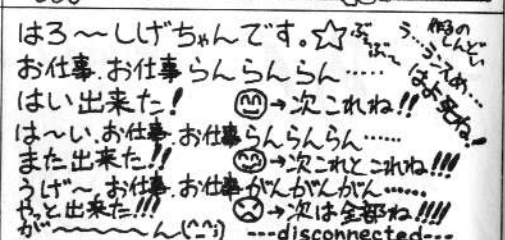 はろ～ししげちゃんです。☆
お仕事、お仕事らんらんらん……
はい出来た! →次これね!!
は～い、お仕事、お仕事らんらんらん……
また出来た!! →次これとこれね!!!
うげ～、お仕事、お仕事がんがんがん……
やっと出来た!!! →次は全部ね!!!!
が～～～～～ん(^_^;) ---disconnected---
ぶぅ～ぶぅ～
作るの
しんどい
はよ死ね!